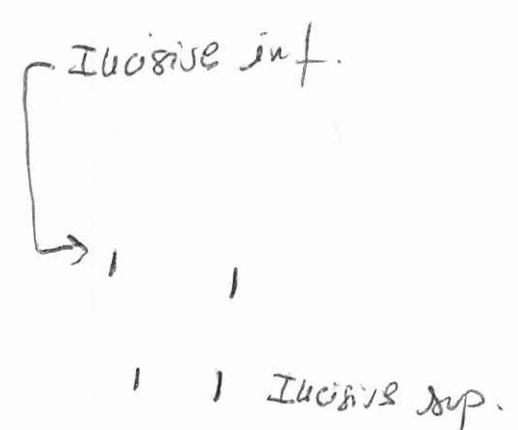 Incisive inf.
Incisive sup.